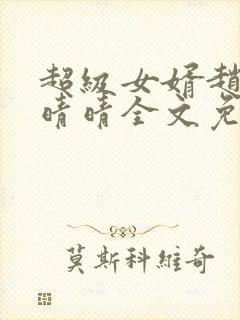 超級女婿趙
晴晴全文免
莫斯科維奇